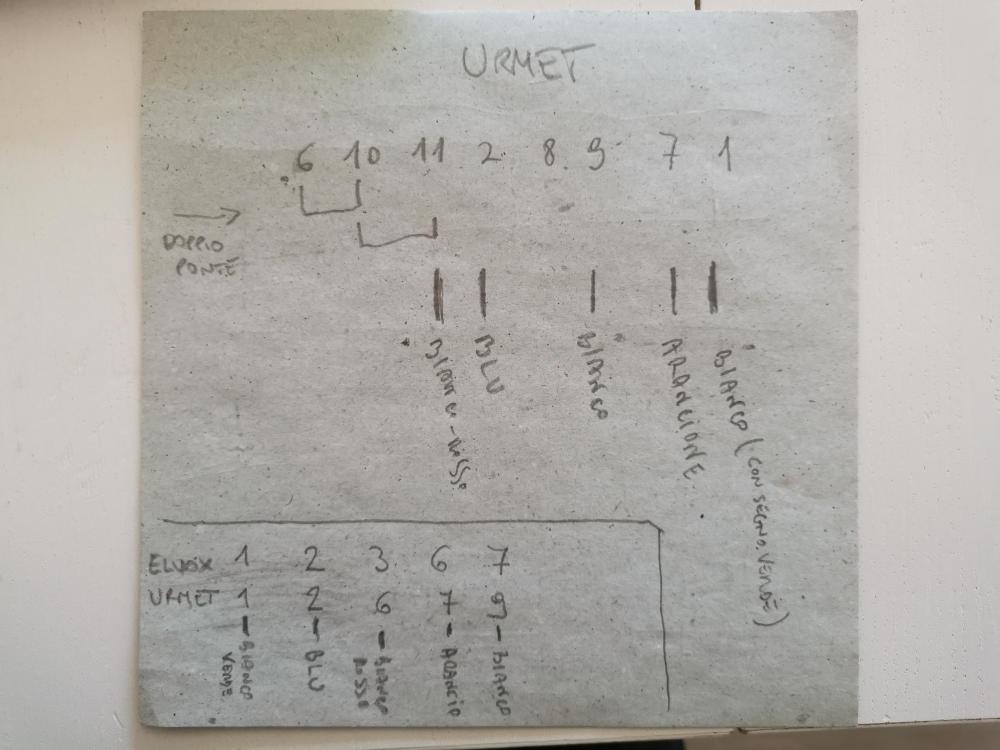 URMET
6 10 11 2 8 9 7 1
DOPPIO
PONTE
BIANCO-ROSSO
BLU
BIANCO
ARANCIONE
BIANCO (CON SEGNO VERDE)
ELVOX 1 2 3 6 7
URMET 1 2 6 7 9
BIANCO
VERDE
BLU
BIANCO
ROSSO
ARANCIO
BIANCO